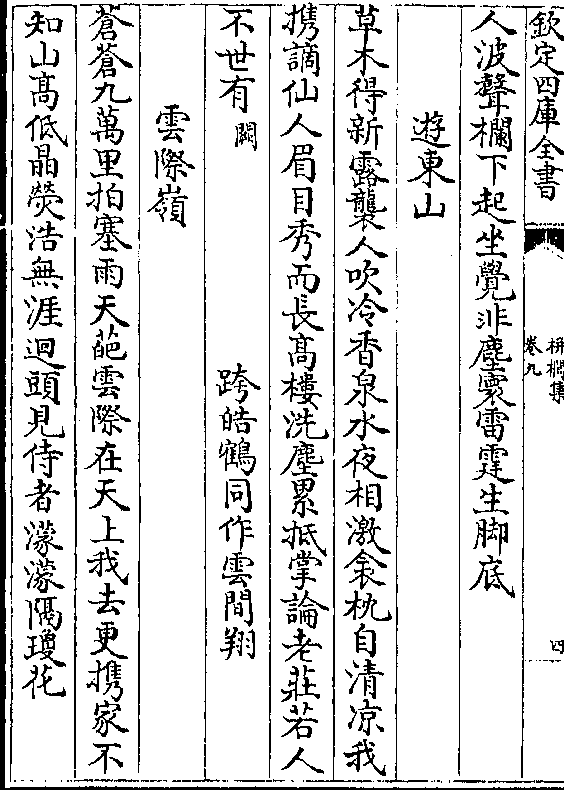 欽定四庫全書
栟櫚集
卷九
四
人波聲欄下起坐覺非塵寰雷霆生脚底
遊東山
草木得新露襲人吹冷香泉水夜相激衾枕自清凉我
携謫仙人眉目秀而長高樓洗塵累抵掌論老莊若人
不世有闕跨皓鶴同作雲間翔
雲際嶺
蒼蒼九萬里拍塞雨天葩雲際在天上我去更携家不
知山髙低晶熒浩無涯迴頭見侍者濛濛隔瓊花